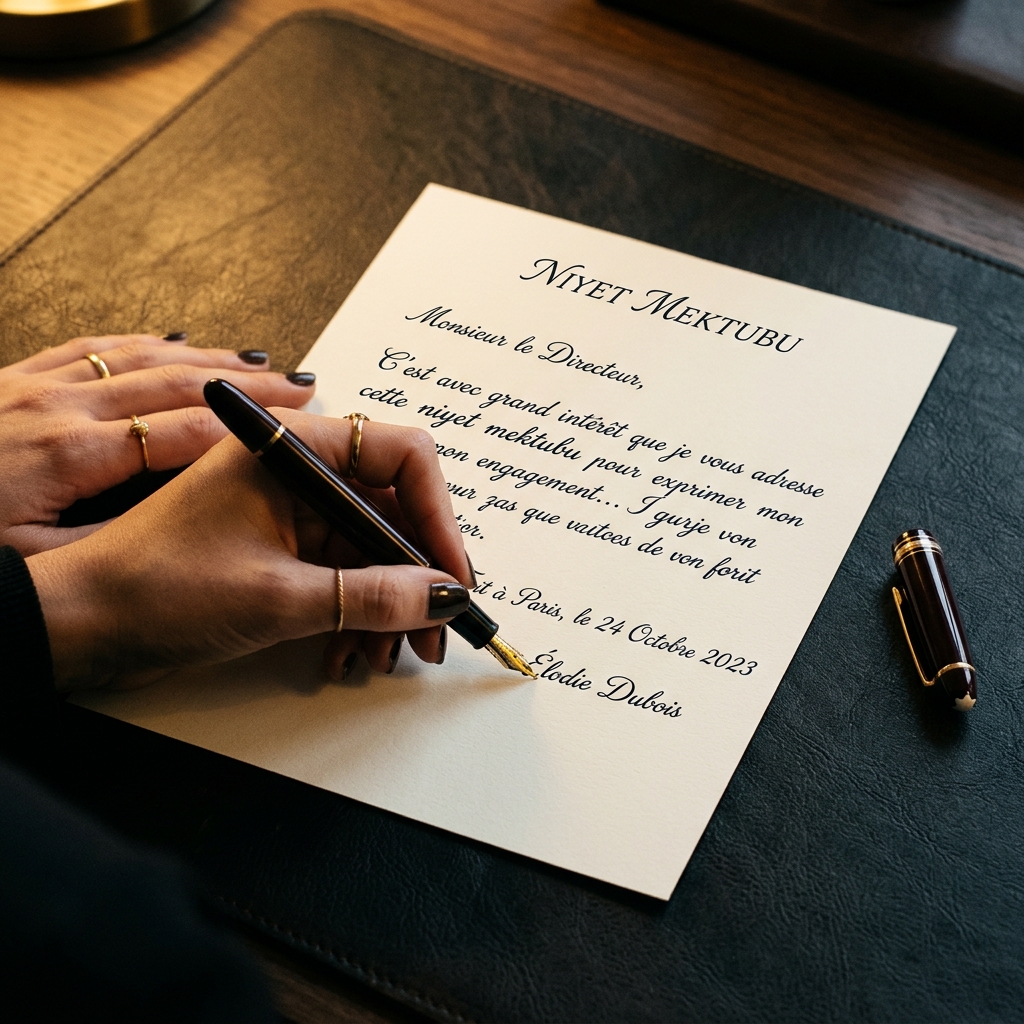 Niyet Mektubu
Monsieur le Directeur,
C'est avec grand intérêt que je vous adresse
cette niyet mektubu pour exprimer mon
mon engagement... I gurje von
zas que vaitces de von forit
à Paris, le 24 Octobre 2023
Élodie Dubois